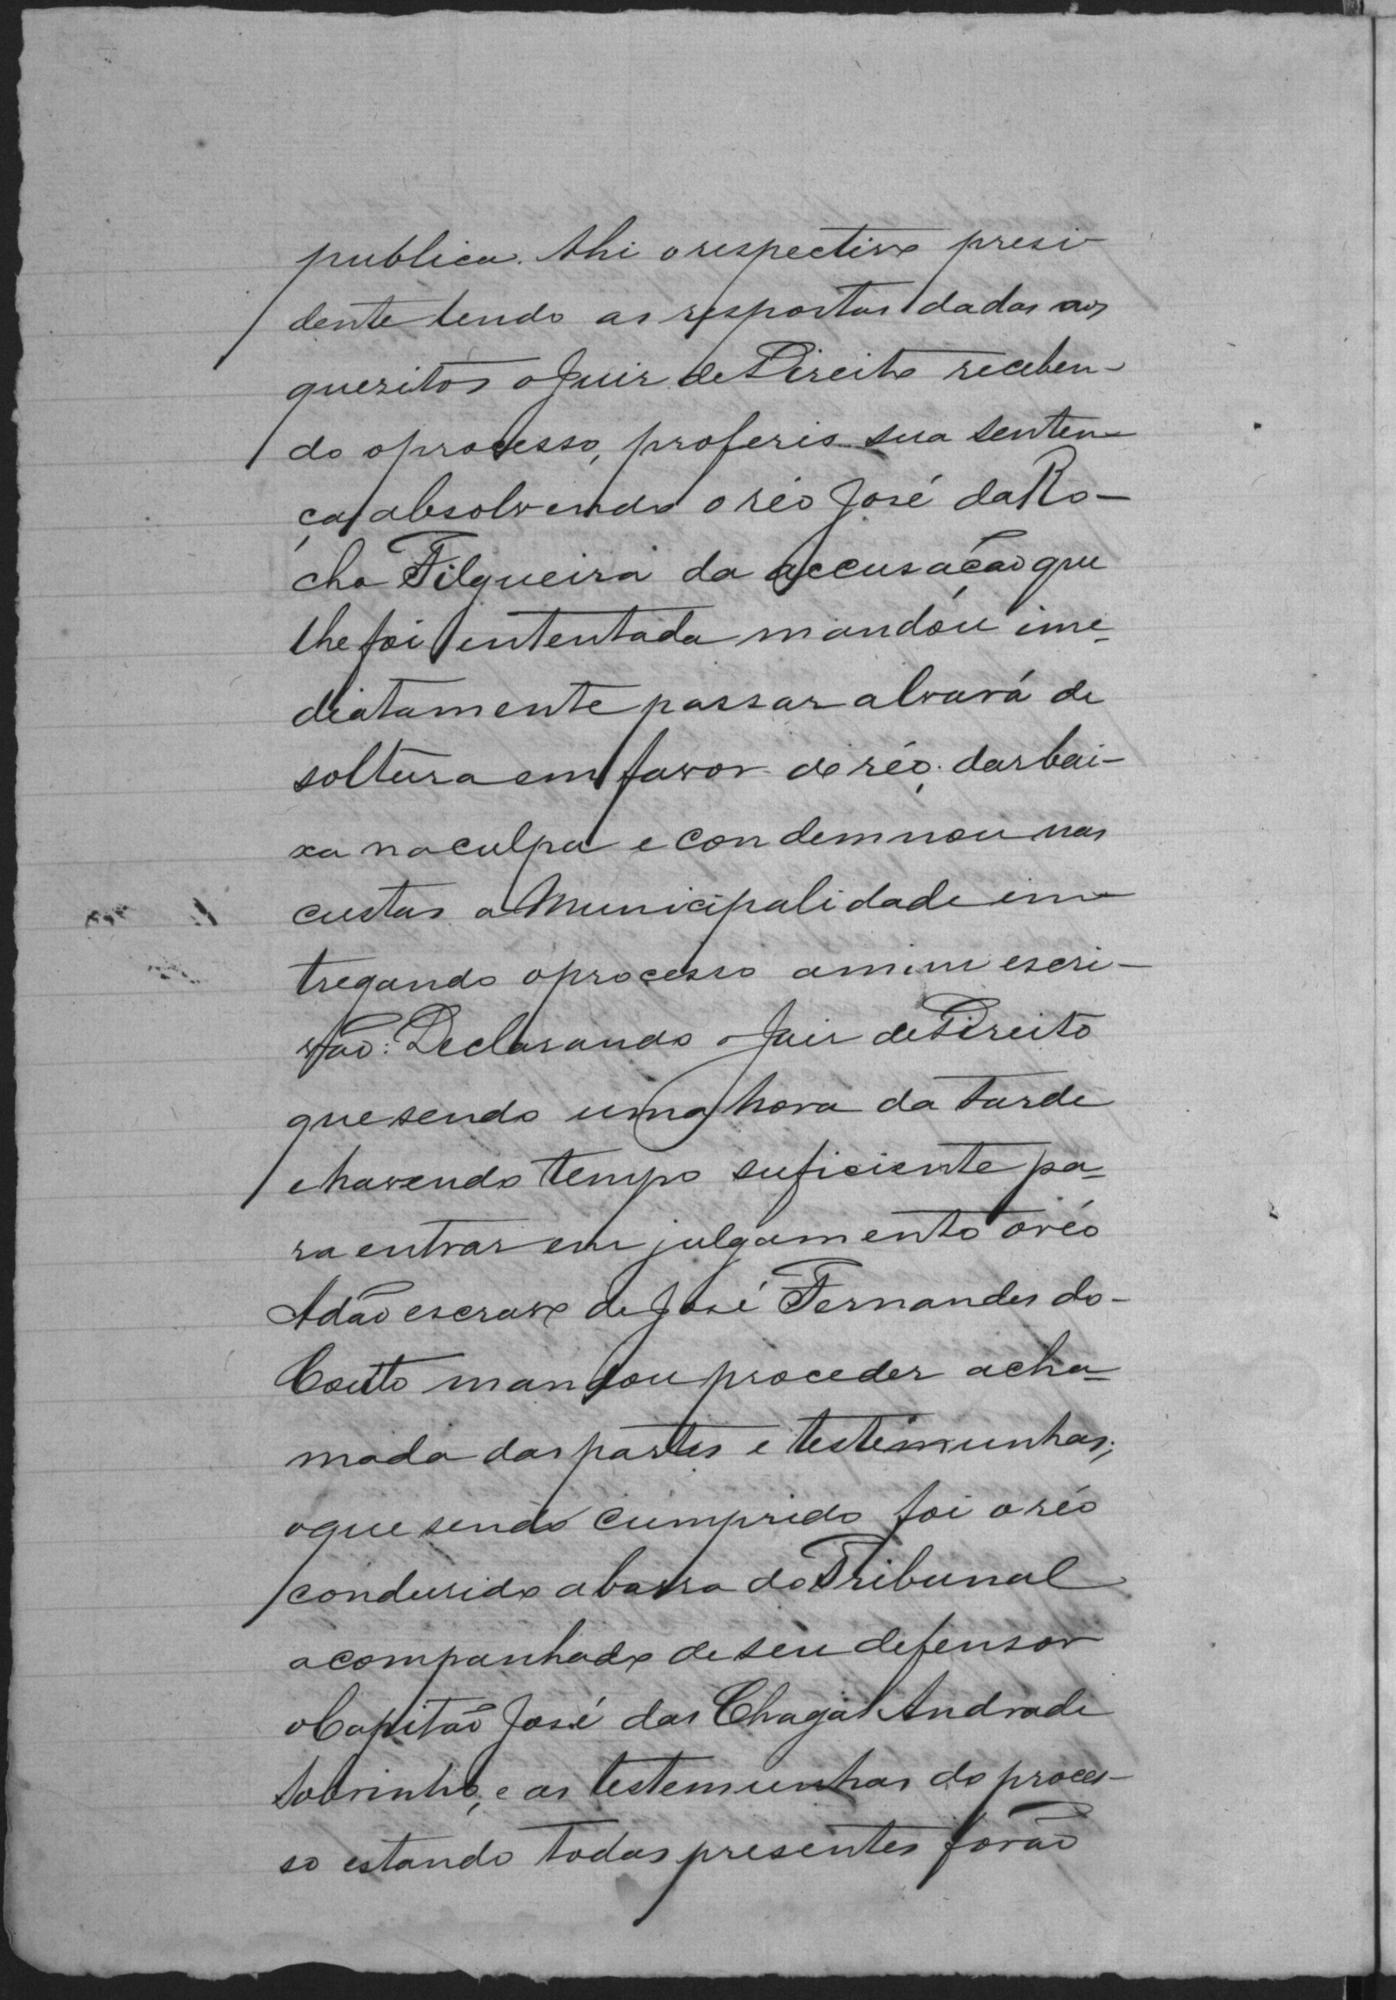 publica. Ahi o respectivo presi-
dente lendo as respostas dadas aos
quesitos o Juiz de Direito receben-
do o processo, proferio sua senten-
ça absolvendo o réo José da Ro-
cha Filgueira da accusação que
lhe foi ententada mandóu ime-
diatamente passar alvará de
soltura em favor do réo, dar bai-
xa na culpa e condemnou nas
custas a Municipalidade en-
tregando o processo a mim escri-
vão: Declarando o Juiz de Direito
que sendo uma hora da tarde
e havendo tempo suficiente pa-
ra entrar em julgamento o réo
Adão escravo de José Fernandes do-
Couto mandou proceder a cha-
mada das partes e testemunhas;
o que sendo cumprido foi o réo
conduzido a barra do Tribunal
acompanhado de seu defensor
o Capitão José das Chagas Andrade
Sobrinho, e as testemunhas do proces-
so estando todas presentes forão